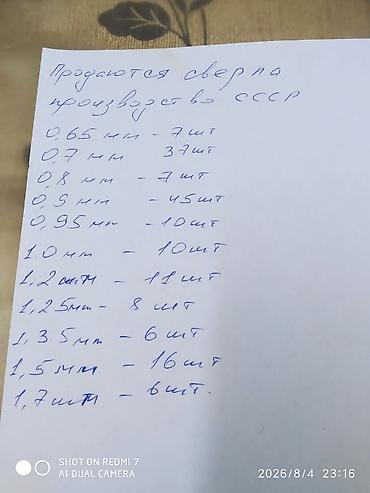 Продаются сверла
производство СССР
0,65 мм - 7 шт
0,7 мм 37 шт
0,8 мм - 7 шт
0,9 мм - 45 шт
0,95 мм - 10 шт
1.0 мм - 10 шт
1,2 мм - 11 шт
1,25 мм - 8 шт
1,35 мм - 6 шт
1,5 мм - 16 шт
1,7 мм - 6 шт.
SHOT ON REDMI 7
AI DUAL CAMERA
2026/8/4 23:16